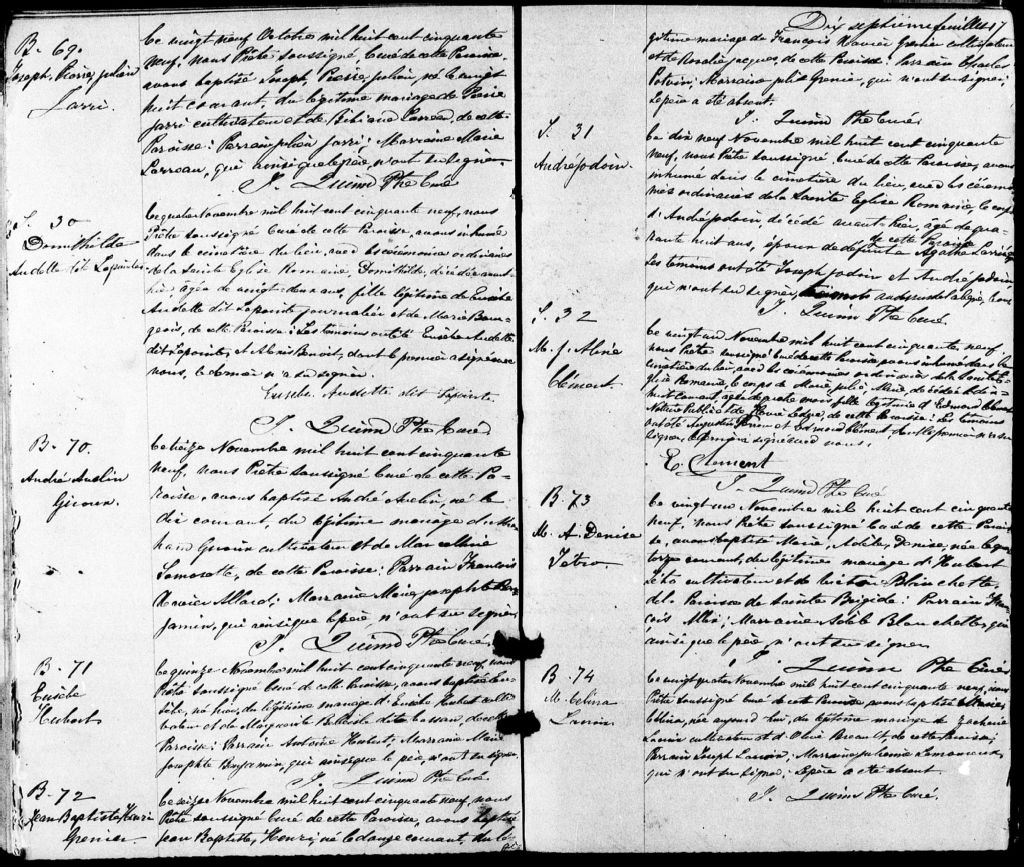 B. 69.
Joseph, Pierre, julien
Jarri.
Le vingt neuf Octobre mil huit cent cinquante
neuf, nous Prêtre soussigné, Curé de cette Paroisse
avons baptisé Joseph, Pierre, julien, né le vingt
huit courant, du légitime mariage de Pierre
Jarri cultivateur et de Bibiane Larreau, de cette
Paroisse: Parrain julien Jarri; Marraine Marie
Larreau, qui ainsi que le père, n'ont su signer.
J. Quinn Ptre Curé
S. 30
Domithilde
Audette dit Lapointe
Le quatre Novembre mil huit cent cinquante neuf, nous
Prêtre soussigné Curé de cette Paroisse, avons inhumé
dans le cimetière du lieu, avec les cérémonies ordinaires
de la Sainte Eglise Romaine, Domithilde, décédée avant
hier, âgée de vingt-deux ans, fille légitime de Eusèbe
Audette dit Lapointe journalier et de Marie Bour-
geois, de cette Paroisse: Les témoins ont été Eusèbe Audette
dit Lapointe, et Alexis Benoit, dont le premier a signé avec
nous, le dernier n'a su signer.
Eusebe Audette dit Lapointe
J. Quinn Ptre Curé
B. 70.
André Auclin
Giroux.
Le treize Novembre mil huit cent cinquante
neuf, nous Prêtre soussigné Curé de cette Pa-
roisse, avons baptisé André Auclin, né le
dix courant, du légitime mariage
Giroux cultivateur et de Marcelline
Lamoureux, de cette Paroisse: Parrain François
Xavier Allard; Marraine Marie josephte Ben-
jamin, qui ainsi que le père, n'ont su signer
J. Quinn Ptre Curé
B. 71
Eusèbe
Hubert
Le quinze Novembre mil huit cent cinquante neuf, nous
Prêtre soussigné Curé de cette Paroisse, avons baptisé Eu-
sèbe, né hier, du légitime mariage d'Eusèbe Hubert culti-
vateur et de Marguerite Bellisle dite Cassan, de cette
Paroisse: Parrain Antoine Hubert; Marraine Marie
josephte Benjamin, qui ainsi que le père n'ont su signer
J. Quinn Ptre Curé
B. 72
Jean Baptiste Henri
Grenier.
Le seize Novembre mil huit cent cinquante neuf, nous
Prêtre soussigné Curé de cette Paroisse, avons baptisé
jean Baptiste, Henri, né le douze courant, du lé-
Dix septième feuillet 17
gitime mariage de François Xavier Grenier cultivateur
et de Rosalie jacques, de cette Paroisse: Parrain Charles
Potvin; Marraine julie Grenier, qui n'ont su signer;
le père a été absent.
J. Quinn Ptre Curé
S. 31
André jodoin.
Le dix neuf Novembre mil huit cent cinquante
neuf, nous Prêtre soussigné Curé de cette Paroisse, avons
inhumé dans le cimetière du lieu, avec les cérémo-
nies ordinaires de la Sainte Eglise Romaine, le corps
d'André jodoin décédé avant hier, âgé de qua-
rante huit ans, époux de défunte Agathe Larivière
de cette Paroisse
Les témoins ont été Joseph jodoin et André jodoin
qui n'ont su signer,
J. Quinn Ptre Curé.
S. 32
M. j. Aliné
Clément.
Le vingt un Novembre mil huit cent cinquante neuf,
nous Prêtre soussigné Curé de cette Paroisse avons inhumé dans le
cimetière du lieu avec les cérémonies ordinaires de la Sainte E-
glise Romaine, le corps de Marie, julie Aliné, décédée le dix-
huit courant, âgée de quatre mois, fille légitime d'Edmond Clément
Notaire Public et de Ledoux, de cette Paroisse: Les témoins
ont été Augustin et Edmond Clément dont le premier n'a su
signer, le dernier a signé avec nous
E. Clement
J. Quinn Ptre Curé
B. 73
M. A. Denise
Tetro.
Le vingt un Novembre mil huit cent cinquante
neuf, nous Prêtre soussigné Curé de cette Parois-
se, avons baptisé Marie, Adèle, Denise, née le qua-
torze courant, du légitime mariage d'Hubert
Tétro cultivateur et de Blanchette,
de la Paroisse de Sainte Brigide: Parrain Fran-
çois Allie; Marraine Adèle Blanchette, qui
ainsi que le père n'ont su signer
J. Quinn Ptre Curé
B. 74
M. Celina
Lanoir.
Le vingt quatre Novembre mil huit cent cinquante neuf, nous
Prêtre soussigné Curé de cette Paroisse avons baptisé Marie
Celina, née aujourd'hui, du légitime mariage de Zacharie
Lanoir cultivateur et d'Olive et de cette Paroisse;
Parrain Joseph Lanoir; Marraine julienne Lamoureux,
qui n'ont su signer; le père a été absent.
J. Quinn Ptre Curé.